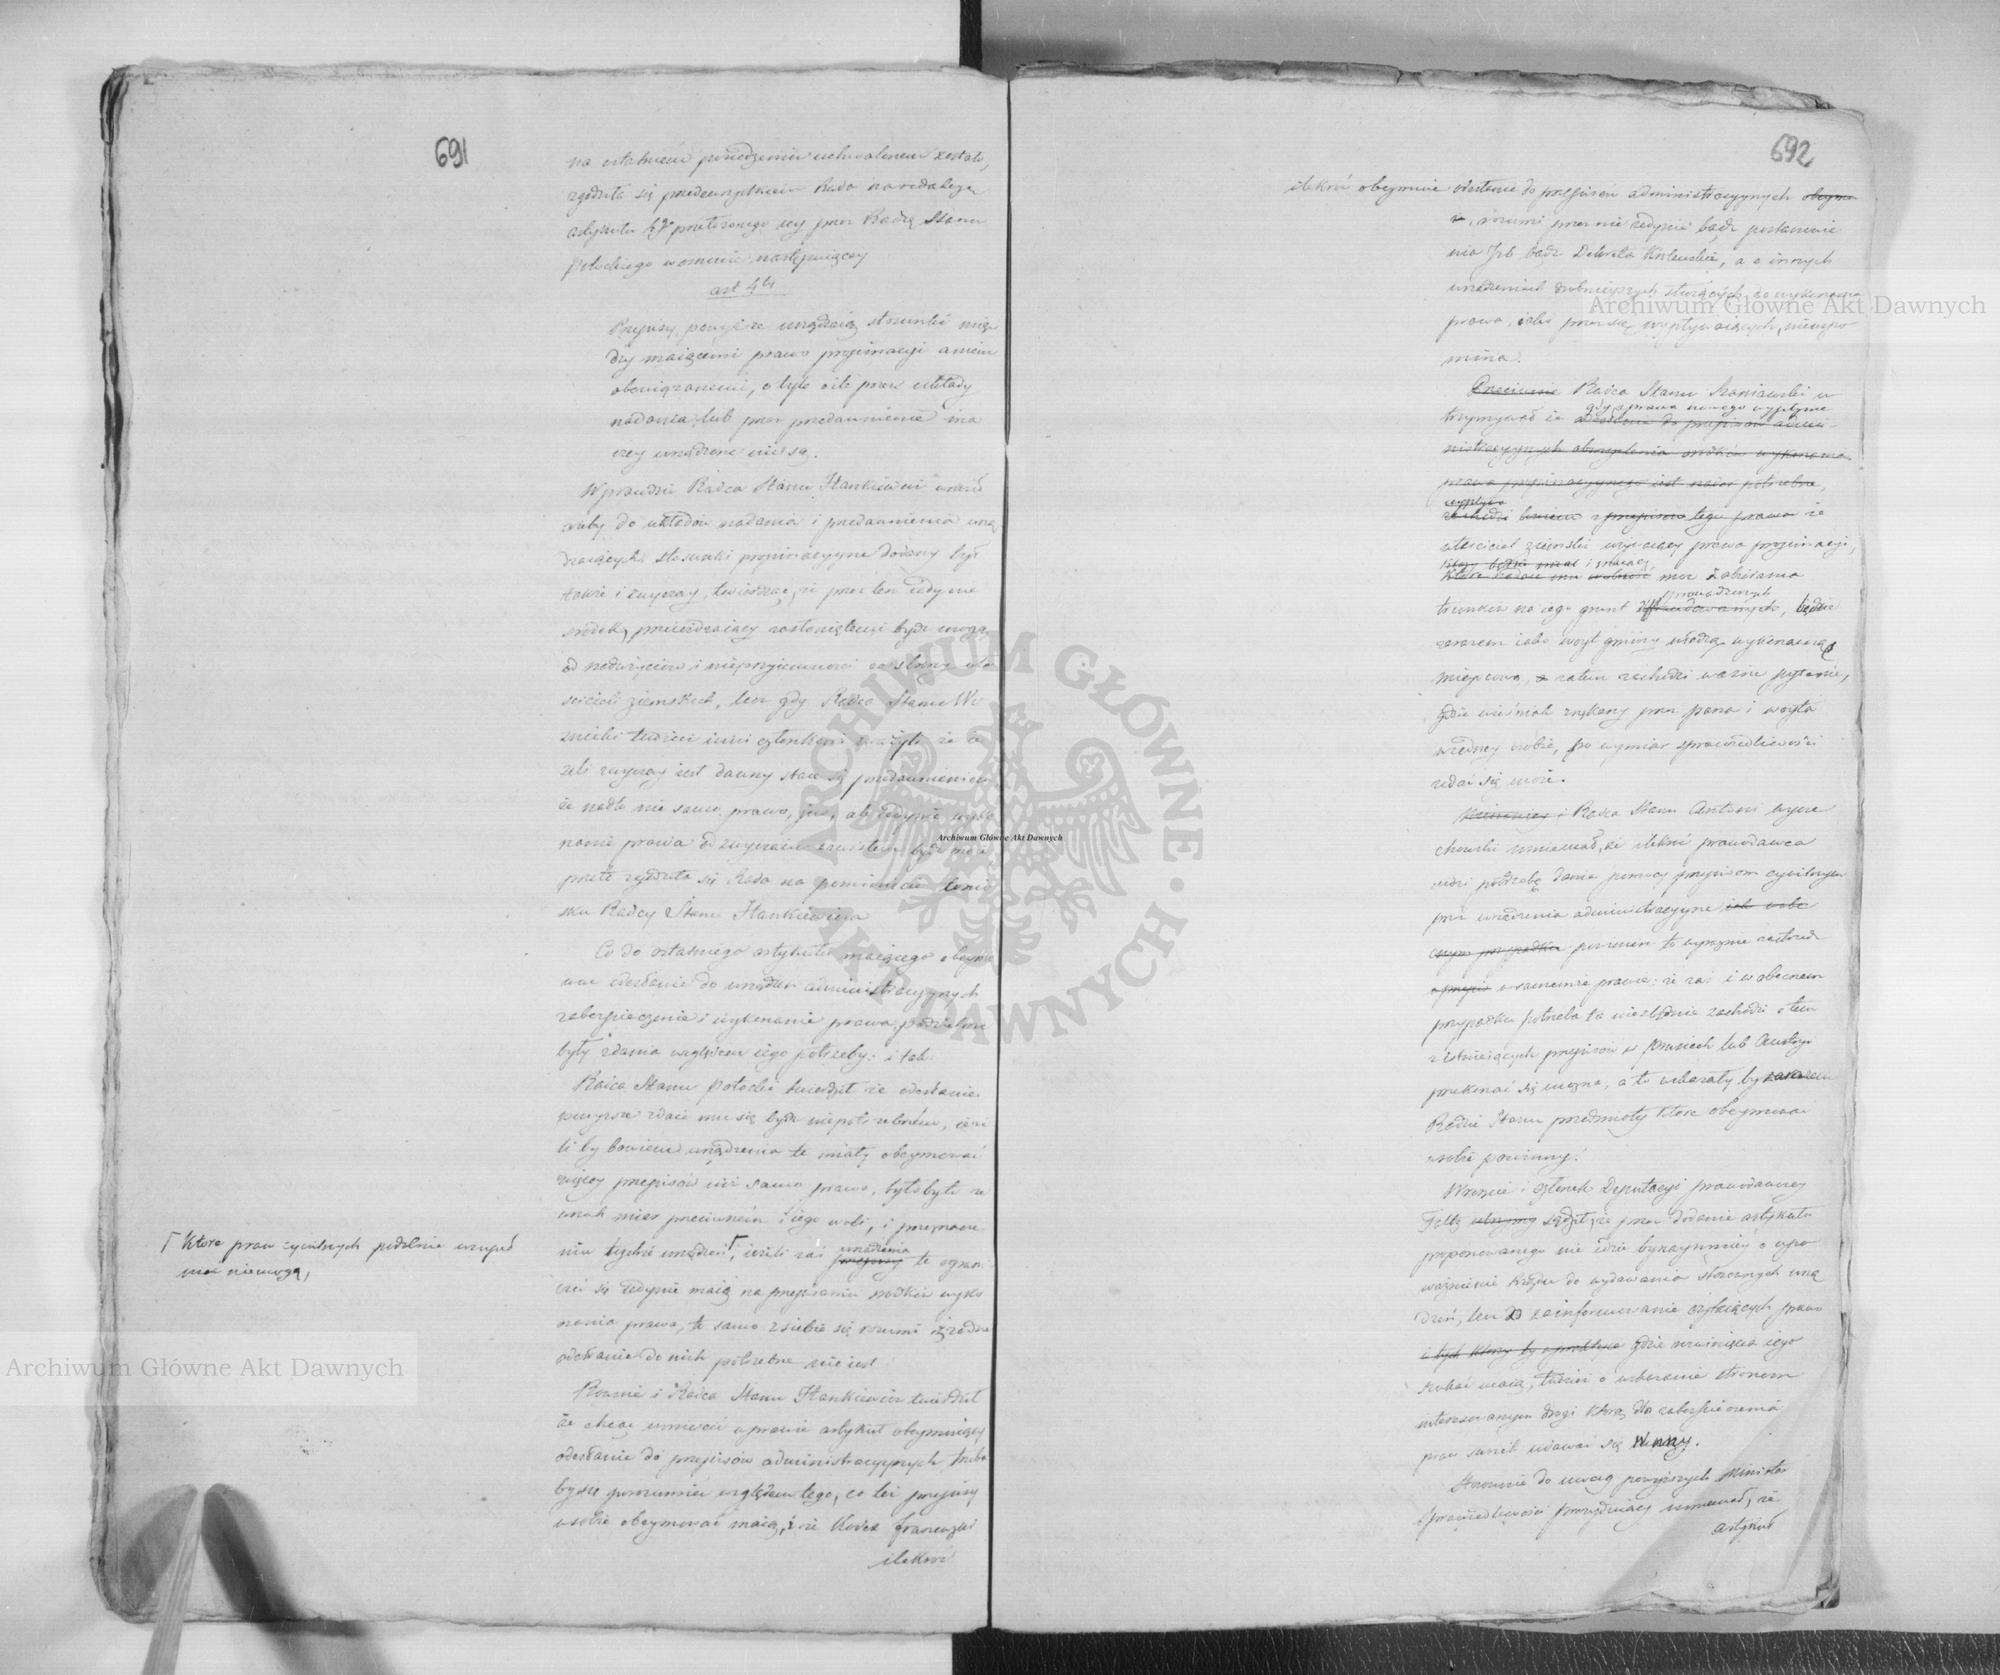 691
na ostatniem posiedzeniu uchwalonem zostało,
zgodziła się przedewszystkiem Rada na redakcyą
artykułu 4go przełożonego iey przez Radcę Stanu
Potockiego w osnowie następuiącey
art 4ty
Przepisy powyższe urządzaią stosunki mię
dzy maiącemi prawo propinacyi a niem
obowiązanemi, o tyle o ile przez układy
nadania lub przez przedawnienie ina
czey urządzone nie są.
Wprawdzie Radca Stanu Hankiewicz wniósł
ażeby do układów nadania i przedawnienia urzą
dzaiących stosunki propinacyyne dodany był
także i zwyczay, twierdząc, że przez ten iedynie
środek, poświęcaiący zasłonięteni być mogą
od nadużyciów i nieprzyiemności ze strony wła
ścicieli ziemskich, lecz gdy Radca Stanu Wo
źnicki tudzież inni członkowie uważyli że ie
żeli zwyczay iest dawny staie się przedawnieniem
że nadto nie samo prawo, jus, ale iedynie wyko
nanie prawa od zwyczaiu zawisłem być może
przeto zgodziła się Rada na pominięcie wnio
sku Radcy Stanu Hankiewicza
Co do ostatniego artykułu maiącego obeymo
wać odesłanie do urządzeń administracyynych
zabezpieczenie i wykonanie prawa, podzielone
były zdania względem iego potrzeby: i tak:
Radca Stanu Potocki twierdził że odesłanie
powyższe zdaie mu się być niepotrzebnem, ieże
li by bowiem urządzenia te miały obeymować
więcey przepisów niż samo prawo, byłoby to ze
wnąk mier przeciwnem i iego woli, i przeznacze
niu tychże urządzeń Γ, ieżeli zaś przepisy urządzenia te ogran
iczać się iedynie maią na przepisaniu środków wyko
nania prawa, to samo z siebie się rozumi i żadne
odesłanie do nich potrzebne nie iest
Γ które praw cywilnych podobnie wzruszać
mieć niemogą,
Równie i Radca Stanu Hankiewicz twierdził
że chcąc umieścić w prawie artykuł obeymuiący
odesłanie do przepisów administracyynych, trzeba
by się porozumieć względem tego, co też przepisy
w sobie obeymować maią, i że Kodex francuzki
ilekroć
692
ilekroć obeymuie odesłanie do przepisów administracyynych obeymu
ie, rozumi przez nie iedynie bądź postanowie
nia Jzb bądź Dekreta Królewskie, a o innych
urządzeniach drobnieyszych służących do wykonania
prawa, iako przez się wypływaiących, niewspo
mina.
Przeciwnie Radca Stanu Staniawski u
trzymywał że gdy z prawa nowego wypływa odesłanie do przepisów admi
nistracyynych obmyślenia środków wykonania
prawa propinacyynego iest nader potrzebne,
wypływa zachodzi bowiem z przepisów tego prawa że
właściciel ziemski używaiący prawa propinacyi,
który będzie miał i maiący które nadaie mu wolność moc zabierania
trunków na iego grunt defraudowanych sprowadzonych, będzie
zarazem iako woyt gminy władzą wykonawczą
mieyscową, a zatem zachodzi ważne pytanie,
gdzie wieśniak uciskany przez pana i woyta
w iedney osobie, po wymiar sprawiedliwości
udać się może.
Również i Radca Stanu Antoni Wycze
chowski mniemał, że ilekroć prawodawca
widzi potrzebę dania pomocy przepisom cywilnym
przez urządzenia administracyyne iak w obe
cnym przypadku powinien to wyraźnie zastrzedz
w przepis w samemże prawie; że zaś i w obecnem
przypadku potrzeba ta niezbędnie zachodzi o tem
z istnieiących przepisów w Prusiech lub Austryi
przekonać się można, a te wskazały by zarazem
Radzie Stanu przedmioty które obeymować
w sobie powinny.
Wreszcie i członek Deputacyi prawodawczey
Faltz utrzymy sądził, że przez dodanie artykułu
proponowanego nie idzie bynaymniey o upo
ważnienie Rządu do wydawania stosownych urzą
dzeń, lecz o zainformowanie czytaiących prawo
i tych którzy by w praktyce gdzie rozwinięcia iego
szukać maią, tudzież o wskazanie stronom
interessowanym drogi którą dla zabezpieczenia
praw swoich udawać się winny.
Stosownie do uwag powyższych Minister
Sprawiedliwości Prezyduiący mniemał, że
artykuł